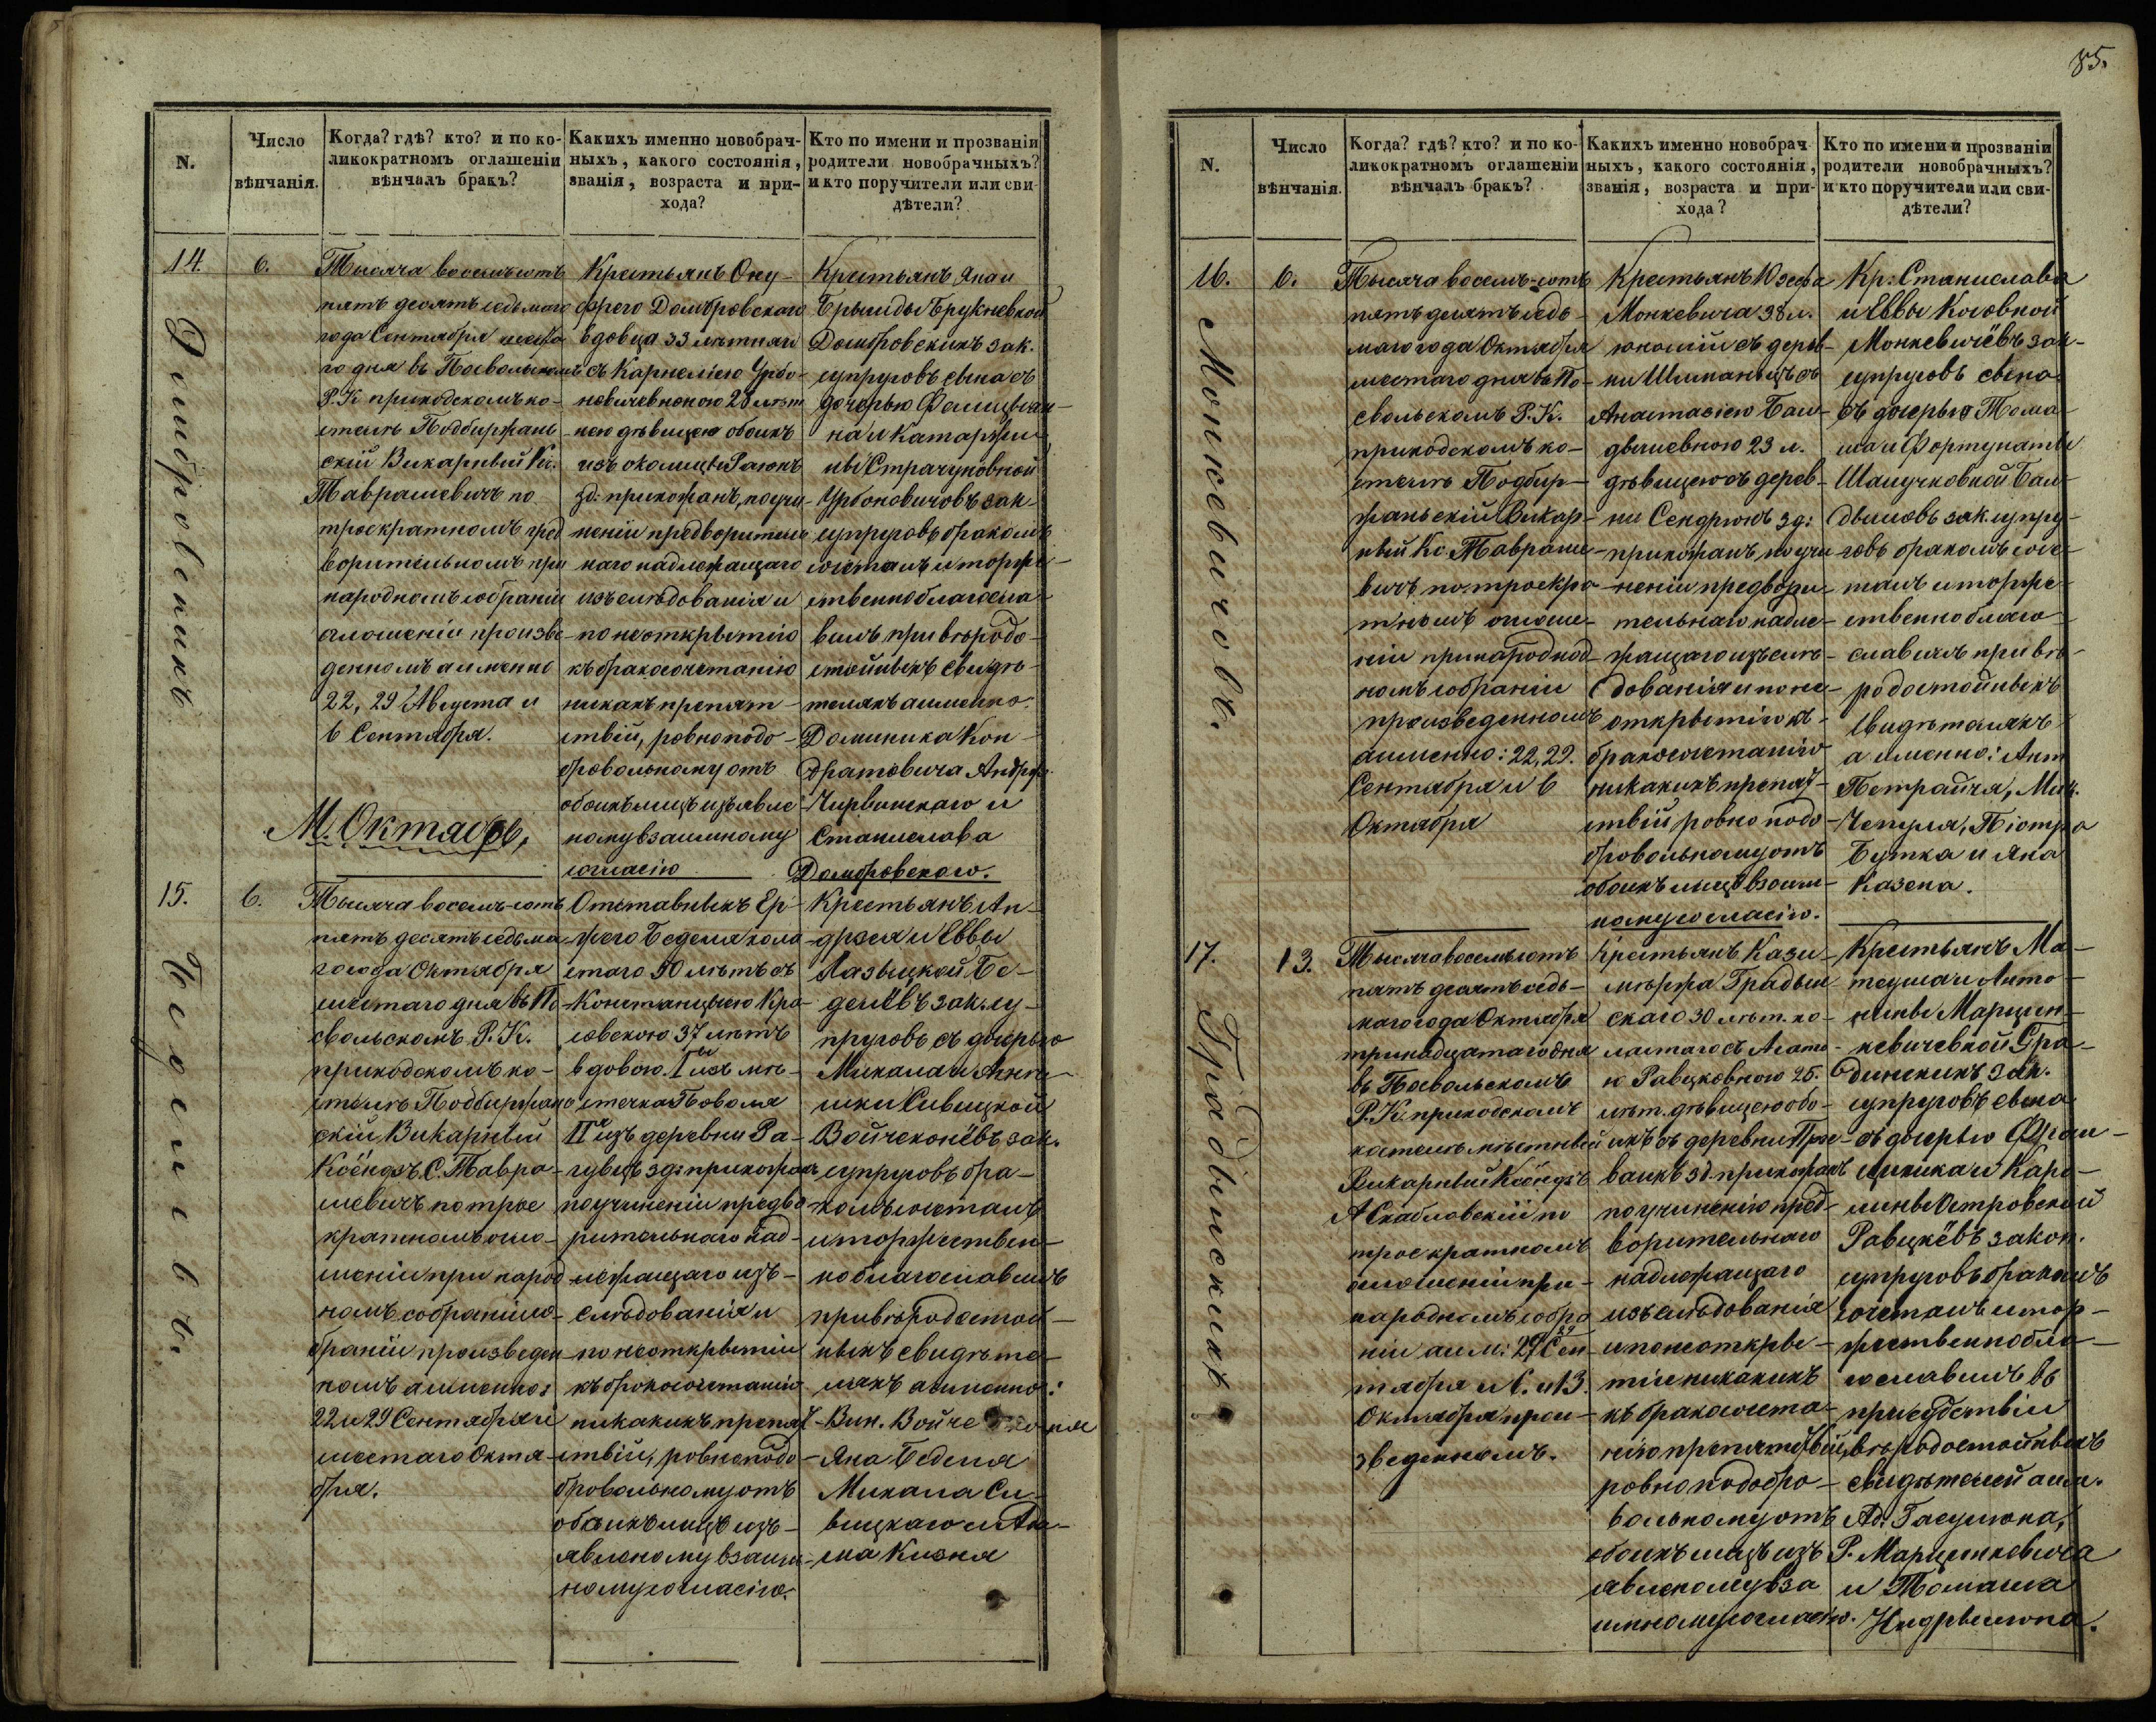 85.
N.
Число
вѣнчанія.
Когда? гдѣ? кто? и по ко-
ликократномъ оглашеніи
вѣнчалъ бракъ?
Какихъ именно новобрач-
ныхъ, какого состоянія,
званія, возраста и при-
хода?
Кто по имени и прозваніи
родители новобрачныхъ?
и кто поручители или сви-
дѣтели?
14.
6.
Домбровскихъ
Тысяча восемьсотъ
пятъ десятъ седьмаго
года Сентября шеста
го дня въ Посвольскомъ
Р. К приходскомъ ко-
стелѣ Подбиржань
скій Викарный Кс.
Таврашевичъ по
троекратномъ пред
ворительномъ при
народномъ собраніи
оглошеніи произве-
денномъ а именно
22, 29 Августа и
6 Сентября.
Крестьянъ Ону-
фрего Домбровскаго
вдовца 33 лѣтняго
съ Карнелією Урбо-
новичевною 28 лѣт
нею дѣвицею обоихъ
изъ околицы Раюнъ
зд: прихожанъ, по учи
неніи предворитель
наго надлежащаго
изъслѣдованія и
по неоткрытію
къ бракосочетанію
никакъ препят-
ствій, ровно по до-
бровольному отъ
обоихъ лицъ изъявле
ному взаимному
согласію
Крестьянъ Яна и
Брыгиды Брукневной
Домбровскихъ зак.
супруговъ сына съ
дочерью Фелициан-
на и Катаржи
ны Страчуновной
Урбоновичовъ зак-
супруговъ бракомъ
сочеталъ и торже-
ственно благосла-
вилъ при вѣродо-
стойныхъ свидѣ-
теляхъ а именно:
Доминика Кон-
дратовича Андрж.
Чирвинскаго и
Станислава
Домбровскаго.
М. Октябрь,
15.
6.
Беделевъ.
Тысяча восемь-сотъ
пятъ десятъ седьма
го года Октября
шестаго дня въ По-
свольскомъ Р. К.
приходскомъ ко-
стелѣ Подбиржан
скій Викарный
Ксёндзъ С. Тавра-
шевичъ по трое
кратномъ огло-
шеніи при народ
номъ собраніи со-
браніи произведен
номъ а именно:
22 и 29 Сентября и
шестаго Октя-
бря.
Отставныхъ Ер-
жего Беделя холо
стаго 50 лѣтъ съ
Констанцыею Кра-
совскою 37 лѣтъ
вдовою. Iый изъ мѣ-
стечка Посволя
IIя изъ деревни Ра-
гувецъ зд: прихожан
по учиненіи предво-
рительнаго над-
лежащаго изъ-
слѣдованія и
по неоткрытіи
къ бракосочетанію
никакихъ препят-
ствій, ровно по до-
бровольному отъ
обоихъ лицъ изъ-
явленому взаим-
ному согласію.
Крестьянъ Ан-
држея и Еввы
Лазвицкой Бе-
делёвъ зак. су-
пруговъ съ дочерью
Михала и Агне-
шки Сивицкой
Войчеконёвъ зак.
супруговъ бра-
комъ сочеталъ
и торжествен-
но благославилъ
при вѣродостой-
ныхъ свидѣте-
ляхъ а именно:
Вин. Войче
Яна Беделя
Михала Си-
вицкаго и Ан-
Кизня
N.
Число
вѣнчанія.
Когда? гдѣ? кто? и по ко-
ликократномъ оглашеніи
вѣнчалъ бракъ?
Какихъ именно новобрач
ныхъ, какого состоянія,
званія, возраста и при-
хода?
Кто по имени и прозваніи
родители новобрачныхъ?
и кто поручители или сви-
дѣтели?
16.
6.
Монкевичовъ.
Тысяча восемь-сотъ
пятъ десятъ седь-
маго года Октября
шестаго дня въ По-
свольскомъ Р. К.
приходскомъ ко-
стелѣ Подбир-
жаньскій Викар-
ный Кс. Тавраше-
вичъ по троекра
тномъ оглоше-
ніи при народно
номъ собраніи
произведенномъ
а именно: 22, 29.
Сентября и 6
Октября
Крестьянъ Юзефа
Монкевича 38 л.
юношій съ дерев-
ни Шиманьцъ съ
Анастасією Бал-
двышевною 23 л.
дѣвицею съ дерев-
ни Сендрюнъ зд:
прихожанъ, по учи
неніи предвори-
тельнаго надле-
жащаго изъслѣ-
дованія и по не-
открытію къ
бракосочетанію
никакихъ препят-
ствій ровно по до-
бровольному отъ
обоихъ лицъ взаим-
ному согласію.
Кр: Станислава
и Еввы Косовной
Монкевичёвъ зак-
супруговъ сына
съ дочерью Тома-
ша и Фортунаты
Шалучковной Бал-
двышовъ зак. супру-
говъ бракомъ соче-
талъ и торже-
ственно благо-
славилъ при вѣ-
родостойныхъ
свидѣтеляхъ
а именно: Ант
Петрайчя, Мих.
Чепуля, Піотра
Бутка и Яна
Казена.
17.
13.
Градыискихъ
Тысяча восемьсотъ
пятъ десятъ седь-
маго года Октября
тринадцатаго дня
въ Посвольскомъ
Р. К. приходскомъ
костелѣ мѣстный
Викарный Ксёндзъ
А Скабловскій по
троекратномъ
оглошеніи при-
народномъ собра
ніи а им: 29 Сен-
тября и 6. и 13.
Октября прои-
зведенномъ.
Крестьянъ Кази-
мѣржа Градыи
скаго 30 лѣт. хо-
лостаго съ Агато-
ю Равцковною 25.
лѣт. дѣвицею обо-
ихъ съ деревни
зд. прихожанъ
по учиненію пред-
ворительнаго
надлежащаго
изъслѣдованія
и по неоткры-
тіи никакихъ
къ бракосочета-
нію препятствій,
ровно по добро-
вольному отъ
обоихъ лицъ изъ
явленому вза
имному согласію.
Крестьянъ Ма-
теуша и Анто-
нины Марцин-
кевичевной Гра-
динскихъ зак.
супруговъ сына
съ дочерью Фран-
цишка и Каро-
лины Островской
Равцкёвъ закон.
супруговъ бракомъ
сочеталъ и тор-
жественно бла-
гославилъ въ
присудствіи
вѣродостойныхъ
свидѣтелей а им.
Ад. Гасулюна,
Р. Марцинкевича
и Томаша
Индрылюна.